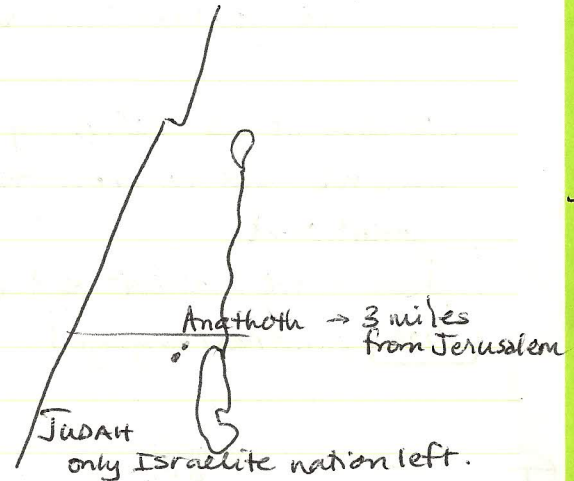 Anathoth → 3 miles
from Jerusalem
JUDAH
only Israelite nation left.